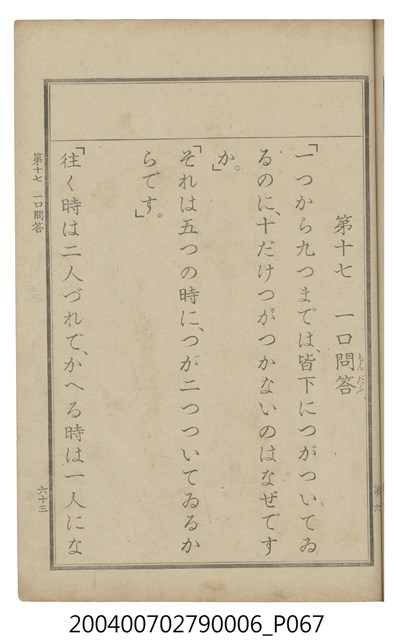 第十七 一口問答
もんだふ
「一つから九つまでは、皆下につがついてゐ
るのに、十だけつがつかないのはなぜです
か。」
「それは五つの時に、つが二つついてゐるか
らです。」
「往く時は二人づれで、かへる時は一人にな
第十七 一口問答
六十三
200400702790006_P067